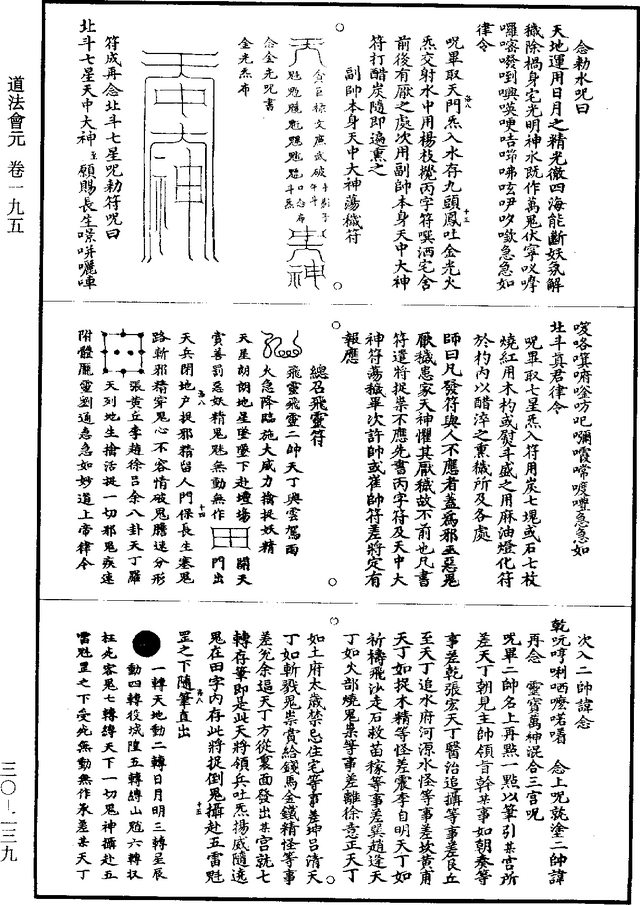 道法會元 卷一九五
三〇—二三九
念勑水呪曰
天地運用日月之精光徹四海能斷妖氛解
穢除禍身宅光明神水既作萬鬼伏寧
急急如
律令
呪畢取天門炁入水存九頭鳳吐金光火
炁交射水中用楊枝攪丙字符噀洒宅舍
前後有厭之處次用副帥本身天中大神
符打醋炭隨即遍熏之
副帥本身天中大神蕩穢符
念金光呪書
金光炁布
符成再念北斗七星呪勑符呪曰
北斗七星天中大神至願賜長生
急急如
北斗真君律令
呪畢取七星炁入符用炭七塊或石七枚
燒紅用木杓或熨斗盛之用麻油燈化符
於杓內以醋淬之熏穢所及各處
師曰凡發符與人不應者蓋爲邪巫惡鬼
厭穢患家天神懼其厭穢故不前也凡書
符遣將捉祟不應先書丙字符及天中大
神符蕩穢畢次許帥或崔帥符差將定有
報應
總召飛靈符
飛靈飛靈二帥天丁興雲駕雨
火急降臨施大威力擒捉妖精
天星朗朗地星墜墜下赴壇場
賞善罰惡妖精鬼魅無動無作 開天
門出
天兵閉地户捉邪精留人門保長生塞鬼
路斬邪精穿鬼心不容情破鬼膽速分形
張黄丘李趙徐吕余八卦天丁羅
天列地生擒活捉一切邪鬼疾速
附體龎靈劉通急急如妙道上帝律令
次入二帥諱念
念上呪就塗二帥諱
再念 靈寶萬神混合三宫呪
呪畢二帥名上再點一點以筆引某宫所
差天丁朝見主帥領旨幹某事如朝奏等
事差乾張宏天丁醫治追攝等事差艮丘
至天丁追水府河源水怪等事差坎黄甫
天丁如捉木精等怪差震李自明天丁如
祈禱飛沙走石救苗稼等事差巽趙逢天
丁如火部燒鬼祟等事差離徐意正天丁
如土府太歲禁忌住宅等事差坤吕清天
丁如斬戮鬼祟賞給錢馬金鐵精怪等事
差兌余這天丁方從裏面發出某宫就七
轉存筆即是此天將領兵吐炁揚威隨遶
鬼在田字內存此將捉倒鬼攝赴五雷魁
罡之下隨筆直出
一轉天地動二轉日月明三轉星辰
動四轉役城隍五轉縛山魈六轉收
枉死客鬼七轉縛天下一切鬼神攝赴五
雷魁罡之下受死無動無作承差某天丁